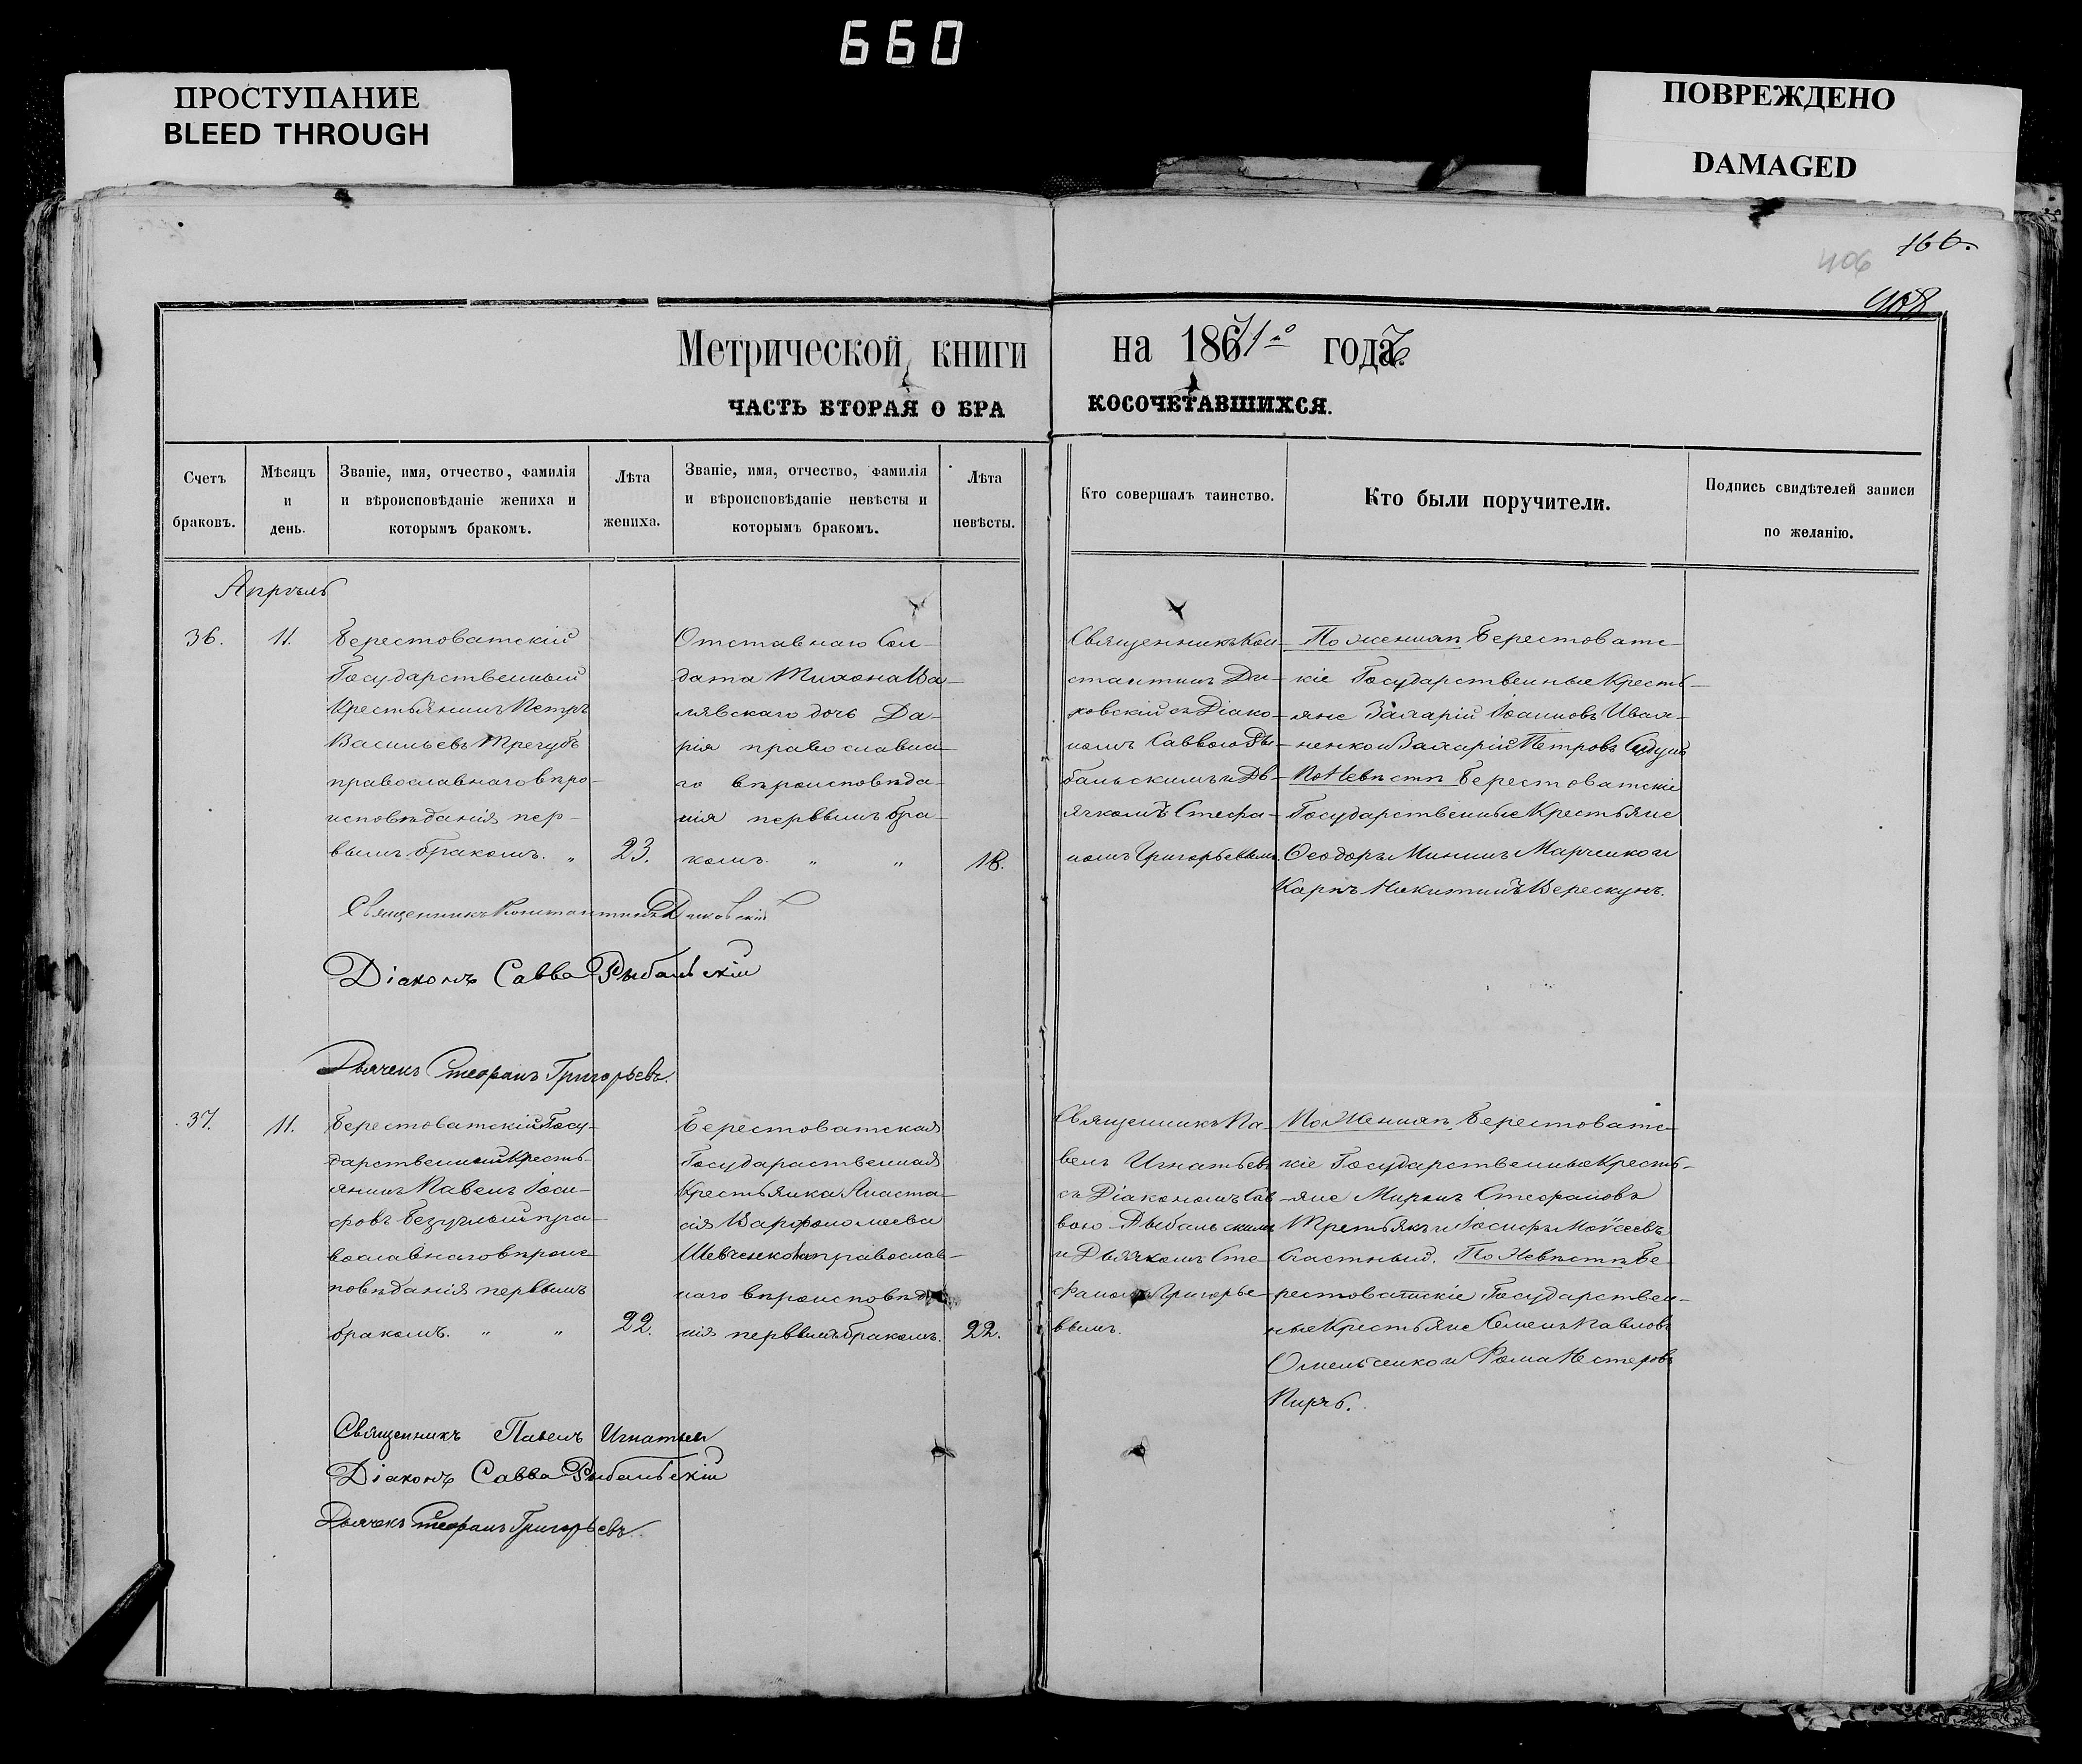 660
ПРОСТУПАНИЕ
BLEED THROUGH
ПОВРЕЖДЕНО
DAMAGED
166.
406
Метрической книги на 1871го года.
ЧАСТЬ ВТОРАЯ О БРАКОСОЧЕТАВШИХСЯ.
Счетъ
браковъ.
Мѣсяцъ
и
день.
Званіе, имя, отчество, фамилія
и вѣроисповѣданіе жениха и
которымъ бракомъ.
Лѣта
жениха.
Званіе, имя, отчество, фамилія
и вѣроисповѣданіе невѣсты и
которымъ бракомъ.
Лѣта
невѣсты.
Кто совершалъ таинство.
Кто были поручители.
Подпись свидѣтелей записи
по желанію.
Апрѣль
36.
11.
Берестоватскій
Государственный
Крестьянинъ Петръ
Васильевъ Трегубъ
православнаго вѣро-
исповѣданія пер-
вымъ бракомъ. „
23.
Отставнаго Сол-
дата Тихона
лявскаго дочь Да-
рія православна-
го вѣроисповѣда-
нія первымъ бра-
комъ. „ „
18.
Священникъ Кон-
стантинъ Ди-
ковскій съ Діако-
номъ Саввою Ры-
бальскимъ и Дь-
ячкомъ Стефа-
номъ Григорьевымъ.
По женихѣ Берестоватс-
кіе Государственные Кресть-
яне Захарій Іоанновъ Иван-
ненко и Захарій Петровъ
По Невѣстѣ Берестоватскіе
Государственные Крестьяне
Ѳеодоръ Мининъ Марченко и
Карпъ Никитинъ Верескунъ.
Священникъ Константинъ Диковскій
Діаконъ Савва Рыбальскій
Дьячекъ Стефанъ Григорьевъ.
37.
11.
Берестоватскій Госу-
дарственный Кресть-
янинъ Павелъ Іоси-
фовъ Безуглый пра-
вославнаго вѣроис-
повѣданія первымъ
бракомъ. „ „
22.
Берестоватская
Государаственная
Крестьянка Анаста-
сія Варфоломеева
Шевченкова православ-
наго вѣроисповѣда-
нія первымъ бракомъ.
22.
Священникъ Па-
велъ Игнатьевъ
съ Діакономъ Сав-
вою Рыбальскимъ
и Дьячкомъ Сте-
фаномъ Григорье-
вымъ.
По Женихѣ Берестоватс-
кіе Государственные Кресть-
яне Миронъ Стефановъ
Третьякъ и Іосифъ Моѵсеевъ
Счастный. По Невѣстѣ Бе-
рестоватскіе Государствен-
ные Крестьяне Семенъ Павловъ
Омельченко и Рома Нестеровъ
Пирчъ.
Священникъ Павелъ Игнатьевъ
Діаконъ Савва Рыбальскій
Дьячекъ Стефанъ Григорьевъ.